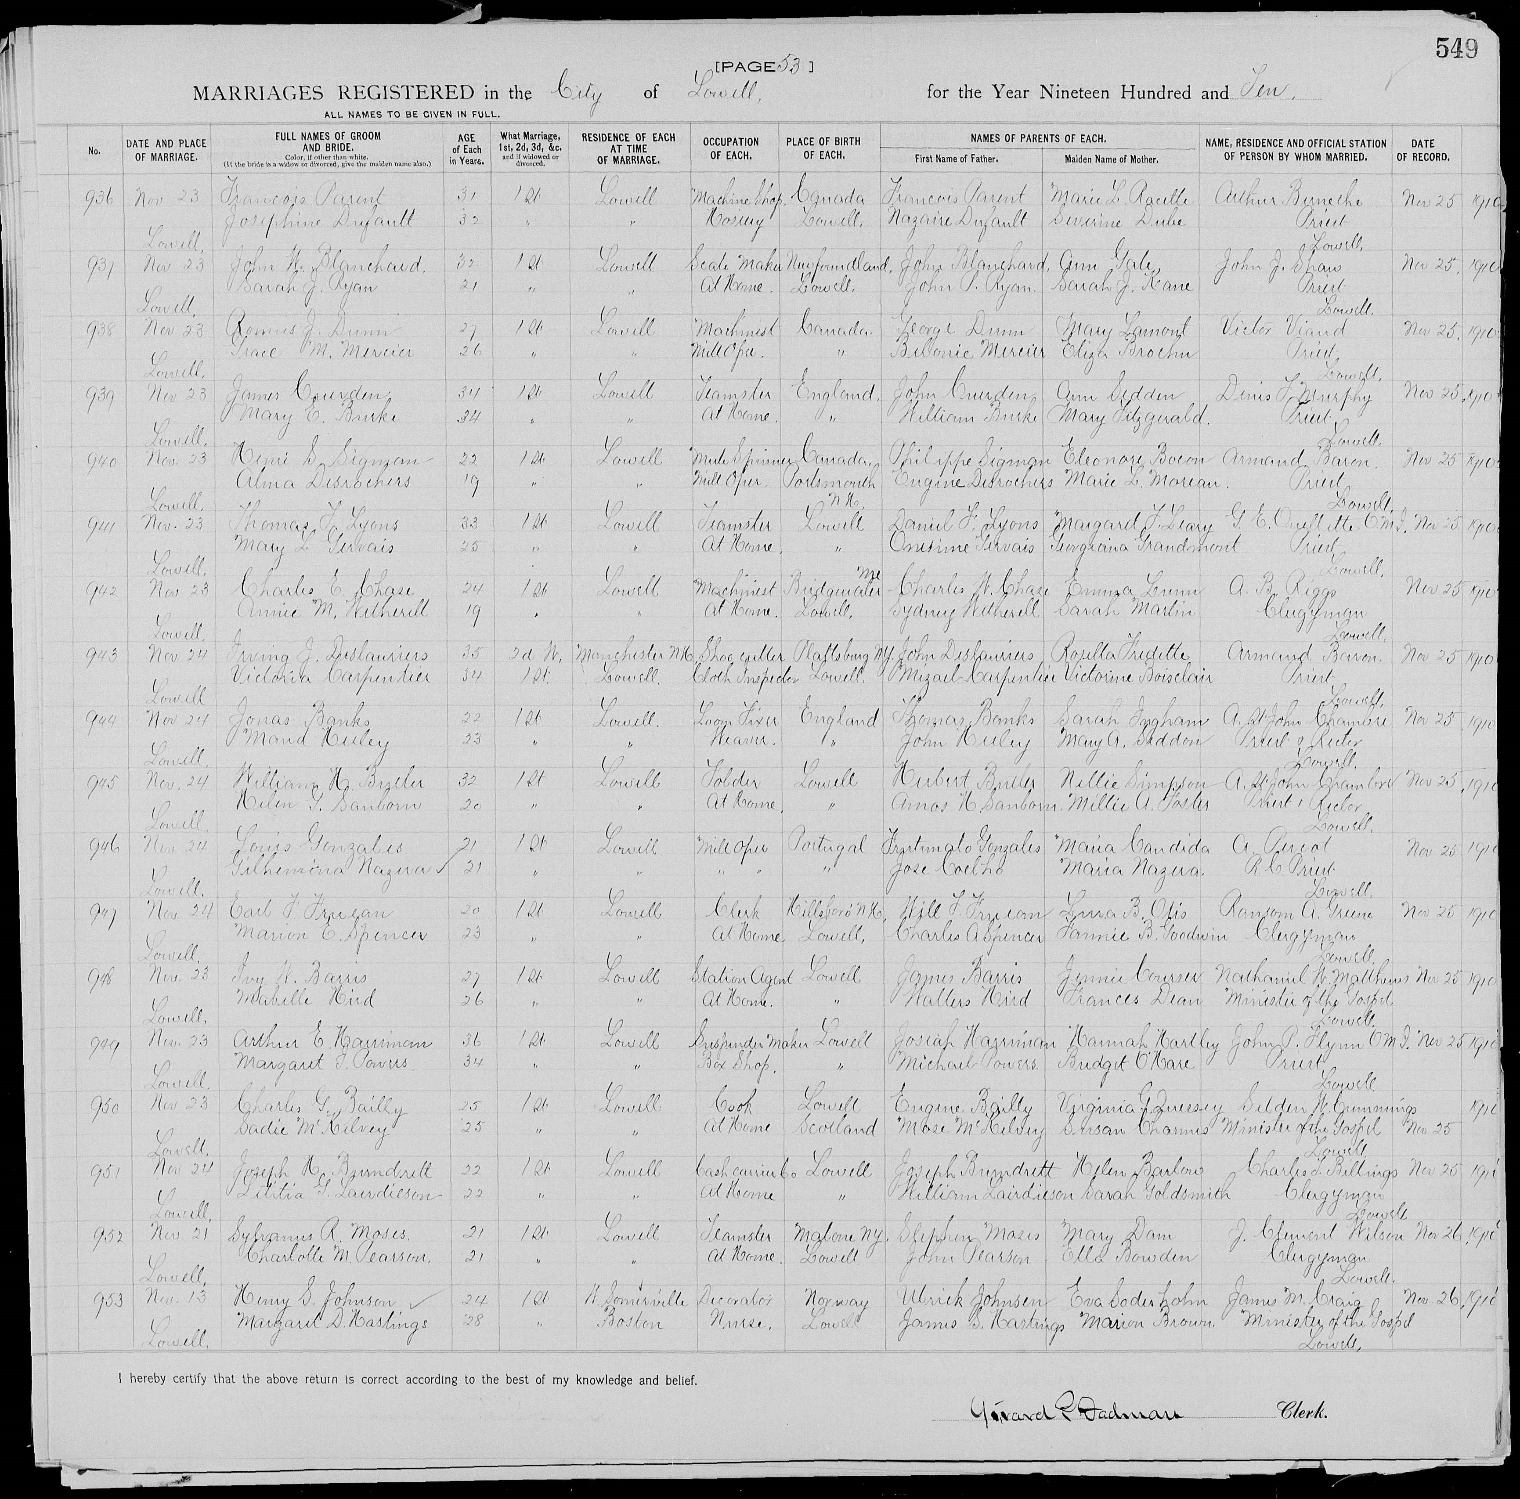 549
[PAGE 53 ]
MARRIAGES REGISTERED in the City of Lowell, for the Year Nineteen Hundred and Ten.
ALL NAMES TO BE GIVEN IN FULL.
No. DATE AND PLACE OF MARRIAGE. FULL NAMES OF GROOM AND BRIDE. Color, if other than white. (If the bride is a widow or divorced, give the maiden name also.) AGE of Each in Years. What Marriage, 1st, 2d, 3d, &c. and if widowed or divorced. RESIDENCE OF EACH AT TIME OF MARRIAGE. OCCUPATION OF EACH. PLACE OF BIRTH OF EACH. NAMES OF PARENTS OF EACH. First Name of Father. Maiden Name of Mother. NAME, RESIDENCE AND OFFICIAL STATION OF PERSON BY WHOM MARRIED. DATE OF RECORD.
936 Nov 23 Francois Parent 31 1 St Lowell Machine Shop Canada Francois Parent Marie L. Arthur Nov 25 1910
Josephine Dufault 32 " " Hosiery Lowell, Nazaire Dufault Severine Dube Priest
Lowell, Lowell,
937 Nov 23 John W. Blanchard. 32 1 St Lowell Scale Maker Newfoundland, John Blanchard, Ann Gale, John J. Shaw Nov 25, 1910
Sarah J. Ryan 21 " " At Home. Lowell. John P. Ryan. Sarah J. Kane Priest
Lowell, Lowell.
938 Nov 23 J. Dunn 27 1 St Lowell Machinist Canada. George Dunn Mary Lamont Victor Viaud Nov 25, 1910
Grace M. Mercier 26 " " Mill Oper. " Mercier Eliza Priest,
Lowell, Lowell,
939 Nov 23 James Cuerden 34 1 St Lowell Teamster England, John Cuerden Ann Seddon Denis F. Murphy Nov 25, 1910
Mary E. Burke 34 " " At Home. " William Burke Mary Fitzgerald. Priest,
Lowell, Lowell.
940 Nov. 23 Henri D. Sigman 22 1 St Lowell Mule Spinner Canada, Philippe Sigman Eleonore Bocon Armand Baron. Nov 25 1910
Alma Desrochers 19 " " Mill Oper. Portsmouth Eugene Desrochers Marie L. Moreau. Priest
Lowell, N.H. Lowell,
941 Nov. 23 Thomas F. Lyons 33 1 St Lowell Teamster Lowell Daniel F. Lyons Margaret F. Leary G. E. Ouellette O.M.I. Nov 25 1910
Mary L Gervais 25 " " At Home. " Onesime Gervais Georgiana Grandmont Priest
Lowell, Lowell,
942 Nov 23 Charles E. Chase 24 1 St Lowell Machinist Bridgewater Me Charles W. Chase Emma Lunn A. B. Riggs Nov 25 1910
Annie M. Witherell 19 " " At Home. Lowell, Sydney Witherell Sarah Martin Clergyman
Lowell. Lowell.
943 Nov 24 Irving J. Deslauriers 25 2d W. Manchester N.H. Shoe cutter Plattsburg N.Y. John Deslauriers Rosella Fredette Armand Baron. Nov 25 1910
Victoria Carpentier 34 1 St. Lowell. Cloth Inspector Lowell. Mizael Carpentier Victorine Boisclair Priest
Lowell Lowell,
944 Nov 24 Jonas Banks 22 1 St Lowell. Loom Fixer England Thomas Banks Sarah Ingham A. St John Chambre Nov 25 1910
Maud Heeley 23 " " Weaver. " John Heeley Mary A. Seddon Priest & Rector
Lowell, Lowell.
945 Nov. 24 William H. Butler 32 1 St Lowell Folder Lowell Hubert Butler Nellie Simpson A. St John Chambre Nov 25, 1910
Helen G. Sanborn 20 " " At Home. " Amos H. Sanborn. Millie A. Foster Priest & Rector
Lowell, Lowell.
946 Nov 24 Louis Gonzales 21 1 St Lowell Mill Oper Portugal Fortunato Gonzales Maria Candida A. Nov 25 1910
Nazera ✓ 21 " " " " " Jose Coelho Maria Nazera. R C Priest
Lowell, Lowell.
947 Nov. 24 Earl F. Freeman 20 1 St Lowell Clerk Hillsboro N.H., Will F. Freeman Lena B. Otis Ransom A. Greene Nov 25 1910
Marion E. Spencer 23 " " At Home. Lowell, Charles A Spencer Fannie B. Goodwin Clergyman
Lowell. Lowell
948 Nov. 23 Ivy W. Barris 27 1 St Lowell Station Agent Lowell James Barris Jennie Courser Nathaniel W Matthews Nov 25 1910
Mabelle Hird 26 " " At Home. " Walters Hird Frances Dean Minister of the Gospel
Lowell, Lowell,
949 Nov. 23 Arthur E. Harriman 36 1 St Lowell Suspender Maker Lowell Josiah Harriman Hannah Hartley John P. Flynn O M I. Nov 25 1910
Margaret T. Powers 34 " " Box Shop. " Michael Powers. Bridget O'Hare Priest
Lowell. Lowell.
950 Nov 23 Charles G. Bailly 25 1 St Lowell Cook Lowell Eugene Bailly Virginia G Guersey Selden W. Cummings 1910
Sadie McKelvey 25 " " At Home Scotland Mose McKelvey Susan Charnus Minister of the Gospel Nov 25
Lowell. Lowell
951 Nov 24 Joseph H. Brundrett 22 1 St Lowell Cash carrier Co Lowell Joseph Brundrett Helen Barlow Charles T. Billings Nov 25 1910
Letitia G. Lairdieson 22 " " At Home " William Lairdieson Sarah Goldsmith Clergyman
Lowell, Lowell
952 Nov. 21 Sylvanus R. Moses. 21 1 St Lowell Teamster Malone N.Y. Stephen Moses Mary Dam J. Clement Wilson Nov 26, 1910
Charlotte M. Pearson. 21 " " At Home. Lowell John Pearson Ella Bowden Clergyman
Lowell, Lowell.
953 Nov. 13 Henry G. Johnson ✓ 24 1 St W. Somerville Decorator Norway Ulrick Johnsen Eva Soderholm James M. Craig Nov. 26, 1910
Margaret D. Hastings 28 " Boston Nurse. Lowell James S. Hastings Marion Brown. Minister of the Gospel
Lowell. Lowell,
I hereby certify that the above return is correct according to the best of my knowledge and belief.
Girard P. Dadman Clerk.